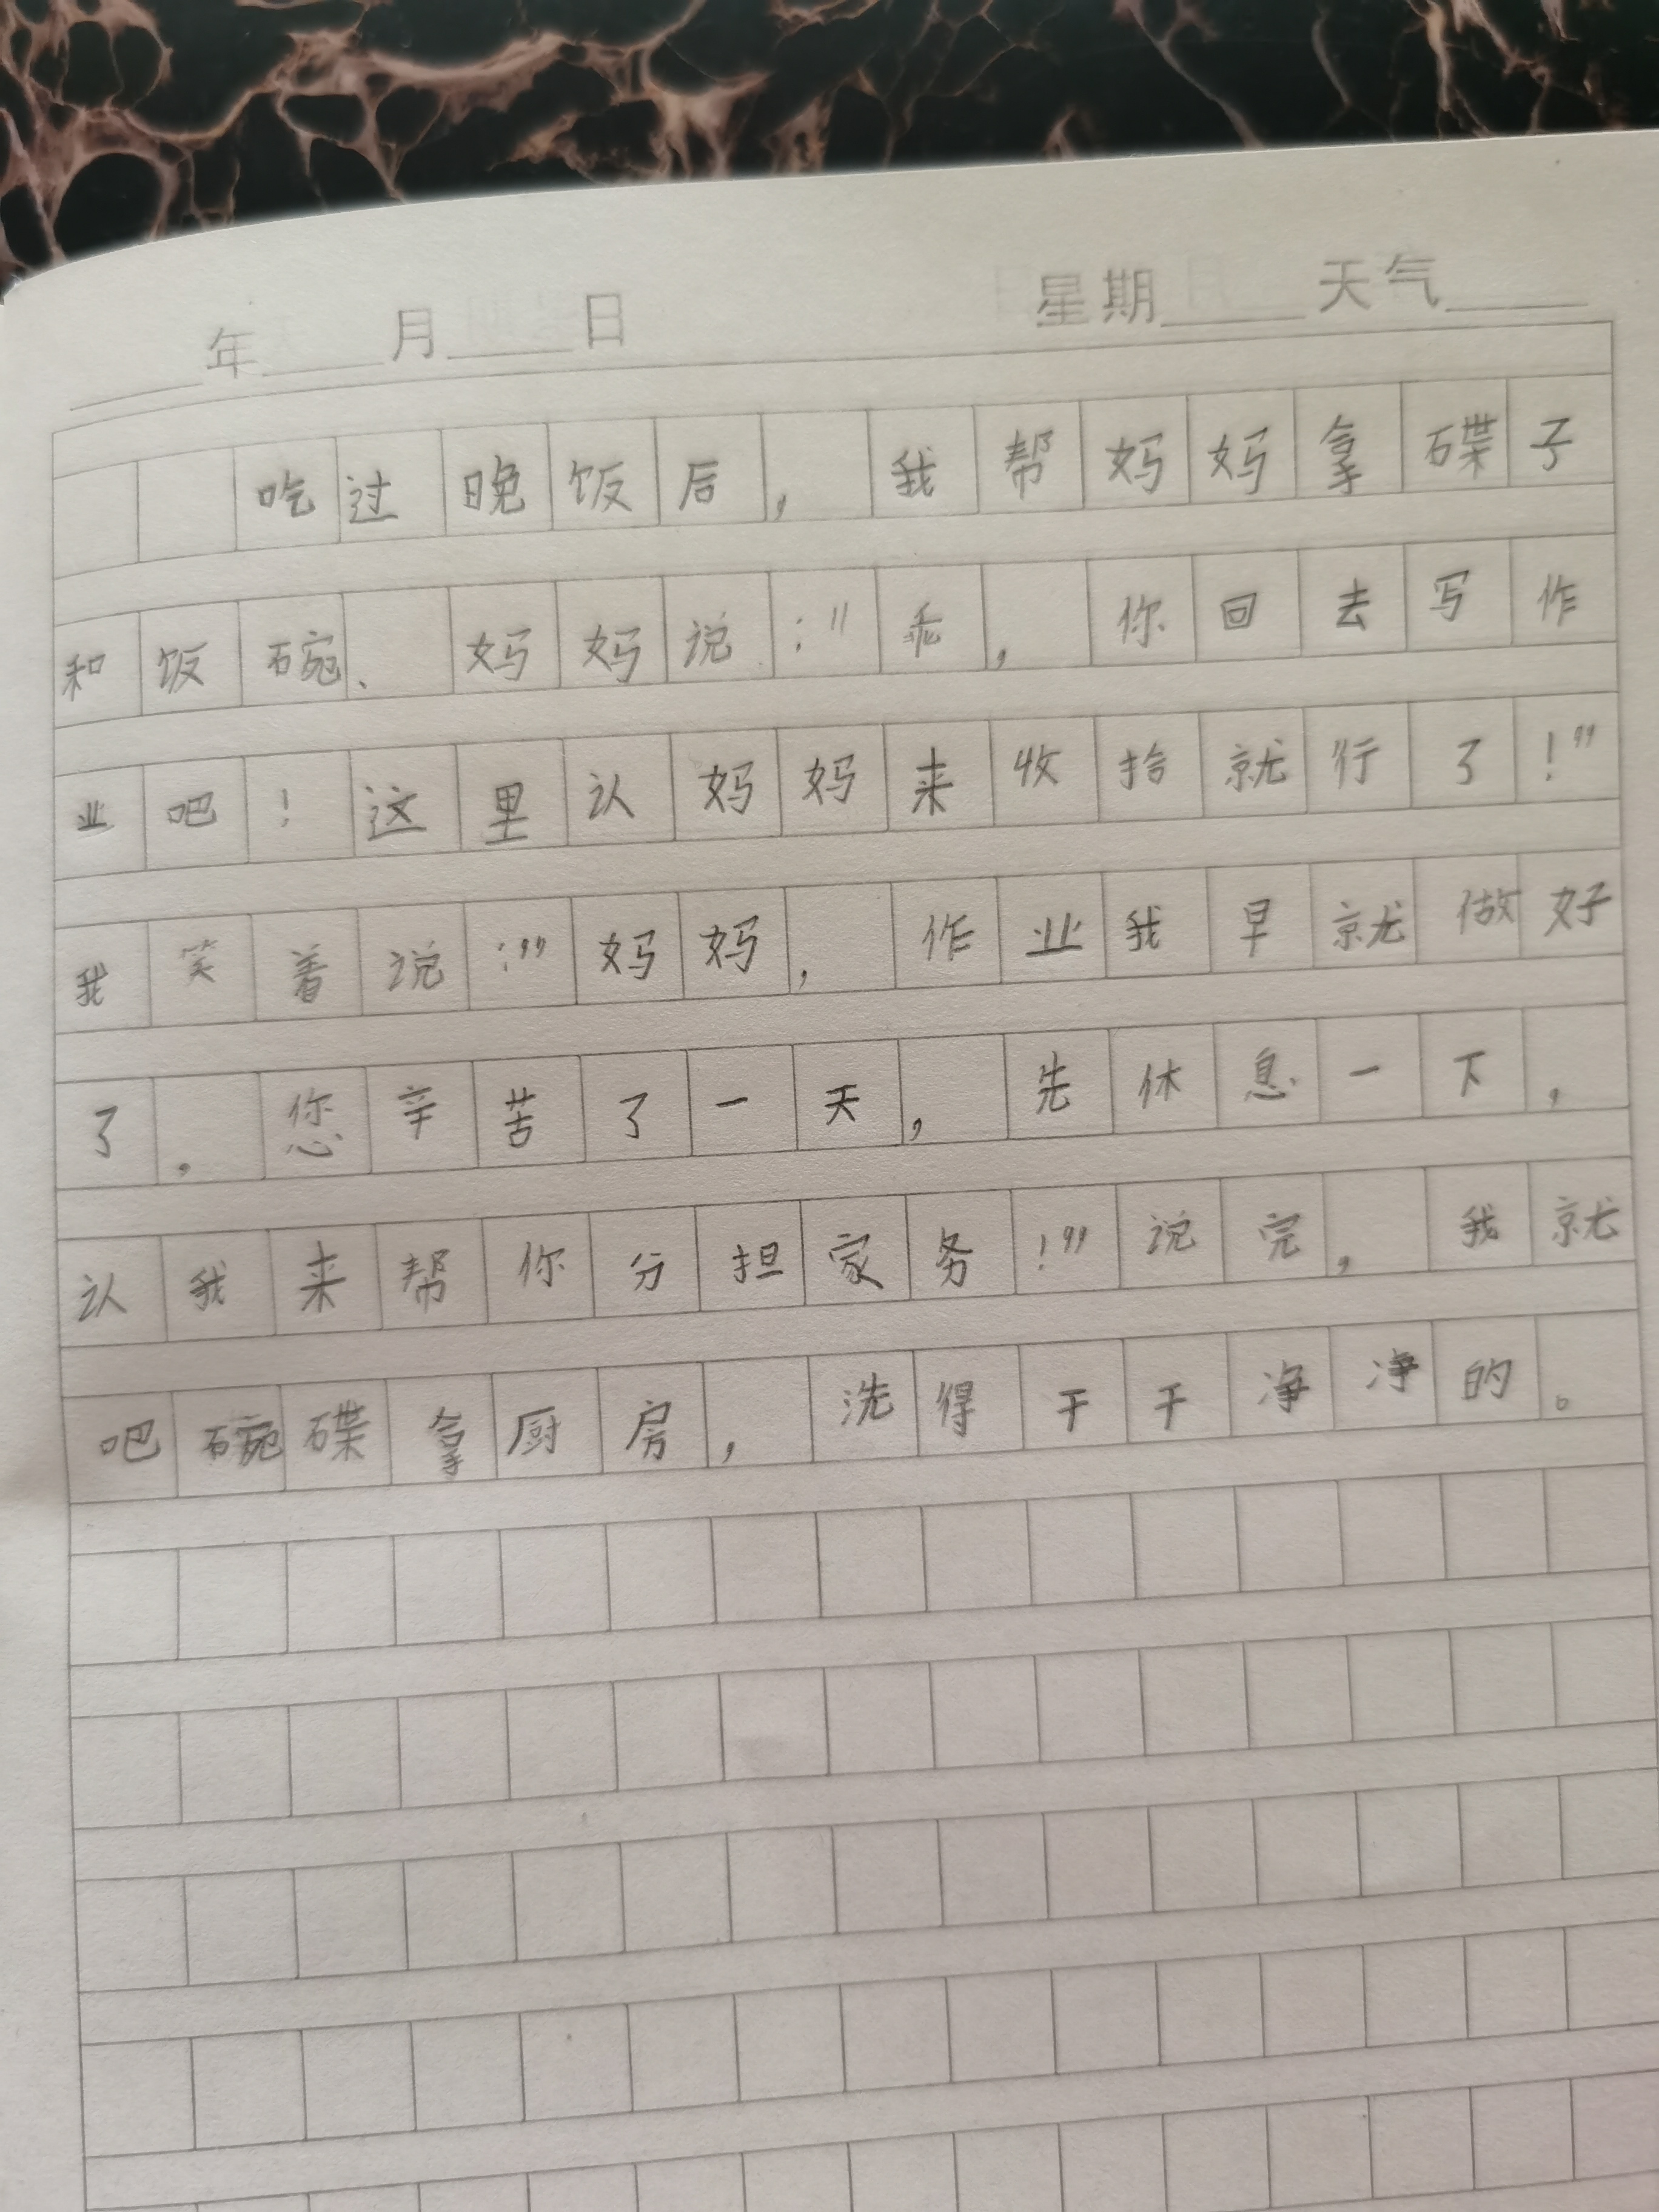 年 月 日 星期 天气
吃过晚饭后，我帮妈妈拿碟子
和饭碗、妈妈说：＂乖，你回去写作
业吧！这里认妈妈来收拾就行了！”
我笑着说：”妈妈，作业我早就做好
了，您辛苦了一天，先休息一下，
认我来帮你分担家务！”说完，我就
吧碗碟拿厨房，洗得干干净净的。